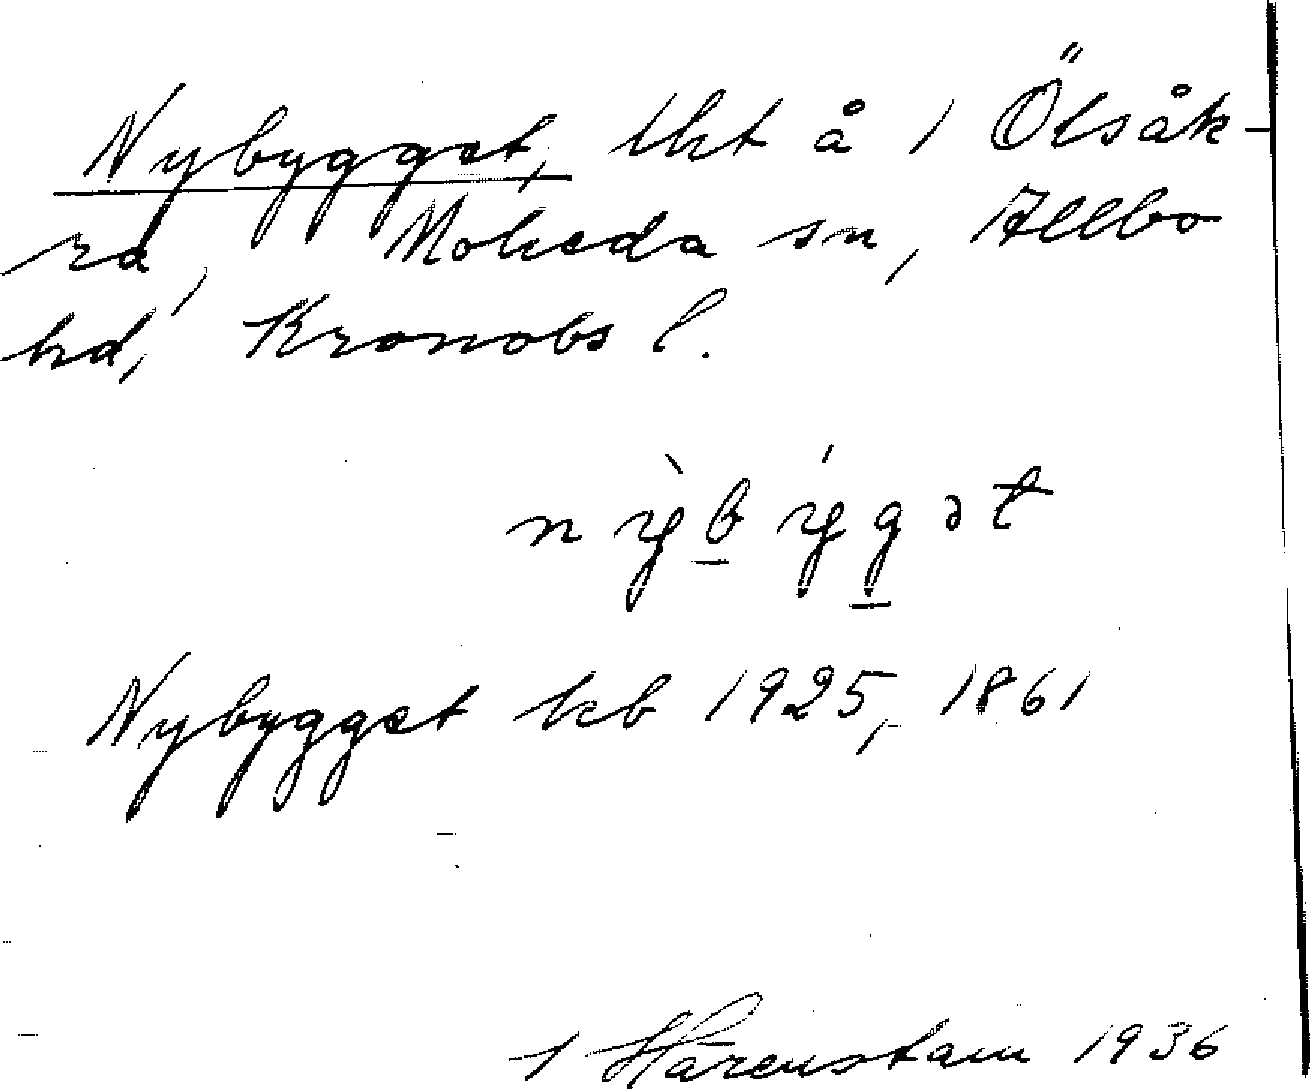 Nybygget, lht å 1 Ölsåk-
ra, Moheda sn, Allbo
hd, Kronobs l.
nỳb́ygət
Nybygget kb 1925, 1861
Härenstam 1936